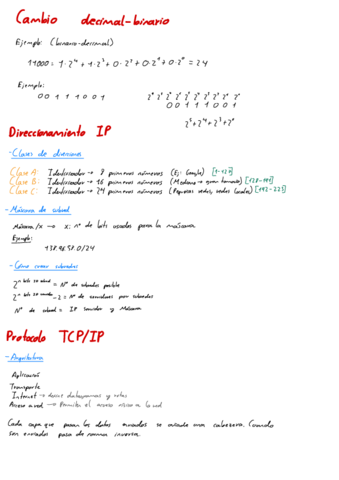 Cambio decimal-binario
Ejemplo: (binario-decimal)
11000 = 1·2⁴ + 1·2³ + 0·2² + 0·2¹ + 0·2⁰ = 24
Ejemplo:
0 0 1 1 1 0 0 1
0 0 1 1 1 0 0 1
2⁵+2⁴+2³+2⁰
Direccionamiento IP
- Clases de direcciones
Clase A: Identificador → 8 primeros números (Ej: Google) [1-127]
Clase B: Identificador → 16 primeros números (Mediano → gran tamaño) [128-191]
Clase C: Identificador → 24 primeros números (Pequeñas redes, redes locales) [192-223]
- Máscara de subred
Máscara /x → x: nº de bits usados para la máscara
Ejemplo:
138.96.58.0/24
- Cómo crear subredes
= Nº de subredes posible
-2 = Nº de servidores por subredes
Nº de subred = IP servidor y Máscara
Protocolo TCP/IP
- Arquitectura
Aplicación
Transporte
Internet → datagramas y rutas
Acceso a red → Permite el acceso físico a la red
Cada capa que pasan los datos enviados se añade una cabecera. Cuando
son enviados pasa de forma inversa.